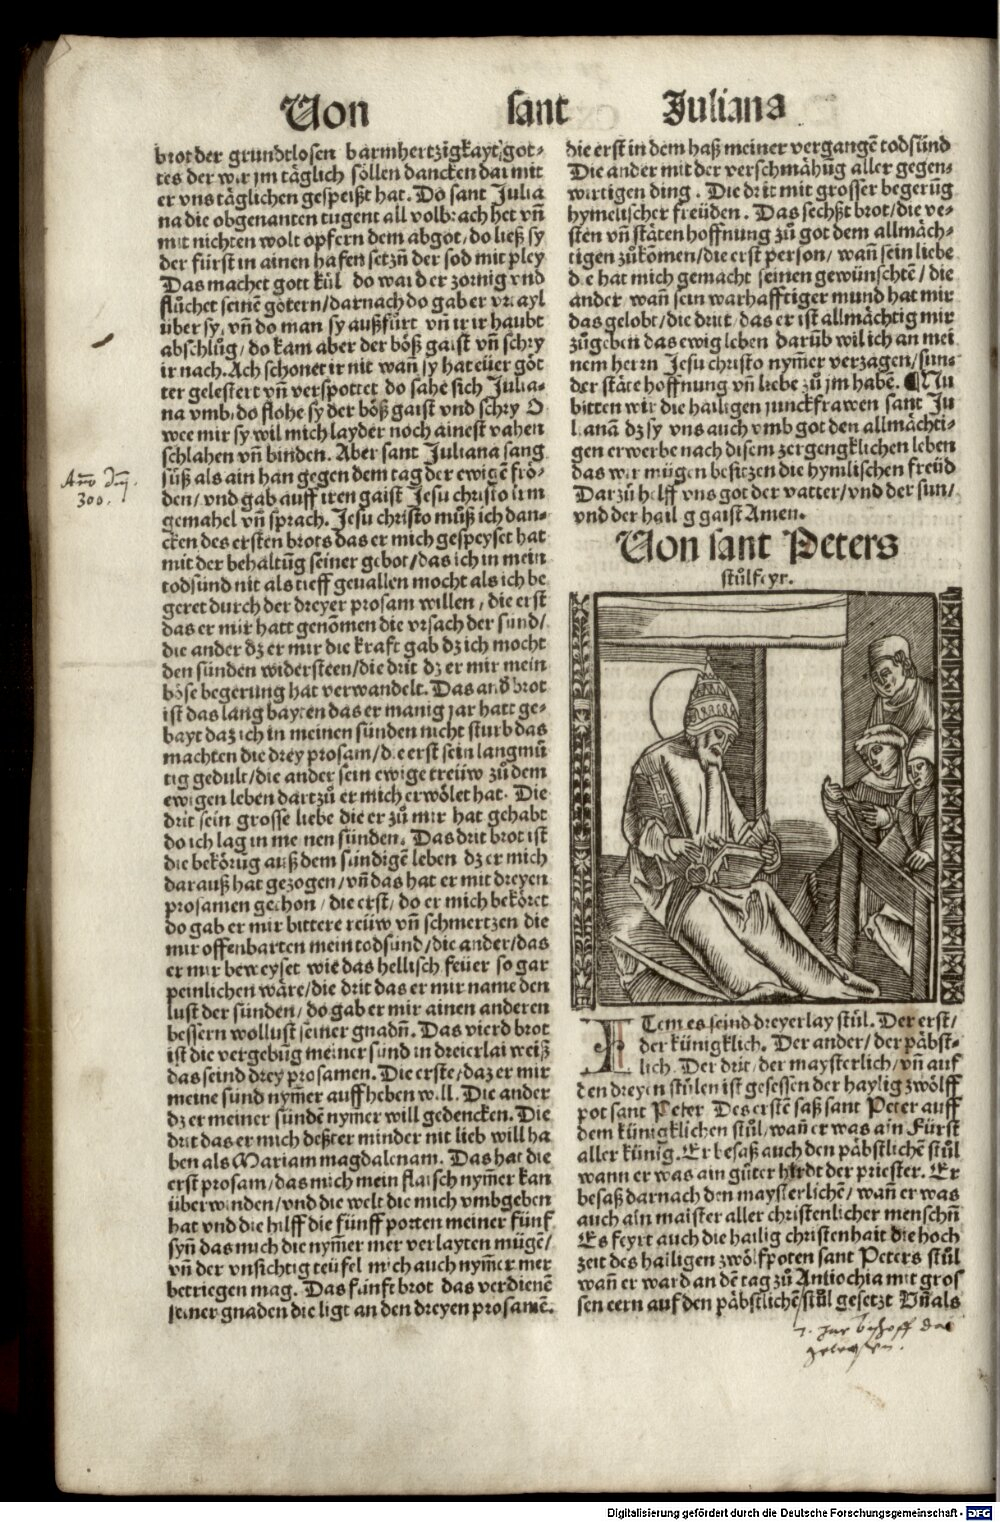 Von sant Juliana
brot der grundtlosen barmhertzigkayt got-
tes der wir jm täglich söllen dancken dar mit
er vns täglichen gespeißt hat. Do sant Julia
na die obgenanten tugent all volbracht het vñ
mit nichten wolt opfern dem abgot/ do ließ sy
der fürst in ainen hafen setzñ der sod mit pley
Das machet gott kůl do ward er zornig vnd
flůchet seinẽ götern/ darnach do gab er vrtayl
über sy/ vñ do man sy außfůrt vñ ir ir haubt
abschlůg/ do kam aber der böß gaist vñ schry
ir nach. Ach schonet ir nit wañ sy hat eüer göt
ter gelestert vñ verspottet do sahe sich Julia-
na vmb/ do flohe sy der böß gaist vnd schry O
wee mir sy wil mich layder noch ainest vahen
schlahen vñ binden. Aber sant Juliana sang
süß als ain han gegen dem tag der ewigẽ frö-
den/ vnd gab auff iren gaist Jesu christo irm
gemahel vñ sprach. Jesu christo můß ich dan-
cken des ersten brots das er mich gespeyset hat
mit der behaltũg seiner gebot/ das ich in mein
todsünd nit als tieff geuallen mocht als ich be
geret durch der dreyer prosam willen/ die erst
das er mir hatt genõmen die vrsach der sünd/
die ander dz er mir die kraft gab dz ich mocht
den sünden widersteen/ die drit dz er mir mein
böse begerung hat verwandelt. Das and brot
ist das lang bayten das er manig jar hatt ge-
bayt daz ich in meinen sünden nicht sturb das
machten die drey prosam/ die erst sein langmü
tig gedult/ die ander sein ewige treüw zů dem
ewigen leben dartzů er mich erwölet hat. Die
drit sein grosse liebe die er zů mir hat gehabt
do ich lag in meinen sünden. Das drit brot ist
die bekörũg auß dem sündigẽ leben dz er mich
darauß hat gezogen/ vñ das hat er mit dreyen
prosamen gethon/ die erst/ do er mich beköret
do gab er mir bittere reüw vñ schmertzen die
mir offenbarten mein todsünd/ die ander/ das
er mir beweyset wie das hellisch feüer so gar
peinlichen wäre/ die drit das er mir name den
lust der sünden/ do gab er mir ainen anderen
bessern wollust seiner gnadñ. Das vierd brot
ist die vergebũg meiner sünd in dreierlai weiß
das seind drey prosamen. Die erste/ daz er mir
meine sünd nym̃er auffheben will. Die ander
dz er meiner sündẽ nym̃er will gedencken. Die
drit das er mich deßter minder nit lieb will ha
ben als Mariam magdalenam. Das hat die
erst prosam/ das mich mein flaisch nym̃er kan
überwinden/ vnd die welt die mich vmbgeben
hat vnd die hilff die fünff porten meiner fünf
synñ das mich die nym̃er mer verlayten mügẽ/
vñ der vnsichtig teüfel mich auch nym̃er mer
betriegen mag. Das fünft brot das verdienẽ
seiner gnaden die ligt an den dreyen prosamẽ.
Año Dñi
300.
die erst in dem haß meiner vergangẽ todsünd
Die ander mit der verschmähũg aller gegen-
wirtigen ding. Die drit mit grosser begerũg
hymelischer freüden. Das sechßt brot/ die ve-
sten vñ stäten hoffnung zů got dem allmäch-
tigen zůkõmen/ die erst person/ wañ sein liebe
die hat mich gemacht seinen gewünschtẽ/ die
ander wañ sein warhafftiger mund hat mir
das gelobt/ die drit/ das er ist allmächtig mir
zůgeben das ewig leben darũb wil ich an mei
nem herrn Jesu christo nym̃er verzagen/ sun-
der stäte hoffnung vñ liebe zů jm habẽ. Nu
bitten wir die hailigen junckfrawen sant Ju
lianã dz sy vns auch vmb got den allmächti-
gen erwerbe nach disem zergengklichen leben
das wir mügen besitzen die hymlischen freüd
Darzů helff vns got der vatter/ vnd der sun/
vnd der hailig gaist Amen.
Von sant Peters
stůlfeyr.
ITem es seind dreyerlay stůl. Der erst/
der künigklich. Der ander/ der päbst-
lich. Der drit/ der maysterlich/ vñ auf
den dreyen stůlen ist gesessen der haylig zwölff
pot sant Peter Des erstẽ saß sant Peter auff
dem künigklichen stůl/ wañ er was ain Fürst
aller künig. Er besaß auch den päbstlichẽ stůl
wann er was ain gůter hirdt der priester. Er
besaß darnach den maysterlichẽ/ wañ er was
auch ain maister aller christenlicher menschñ
Es feyrt auch die hailig christenhait die hoch
zeit des hailigen zwölfpoten sant Peters stůl
wañ er ward an dẽ tag zů Anthiochia mit gros
sen eern auf den päbstlichẽ stůl gesetzt Vñ als
7. jar bischoff da
gewesen.
Digitalisierung gefördert durch die Deutsche Forschungsgemeinschaft - DFG